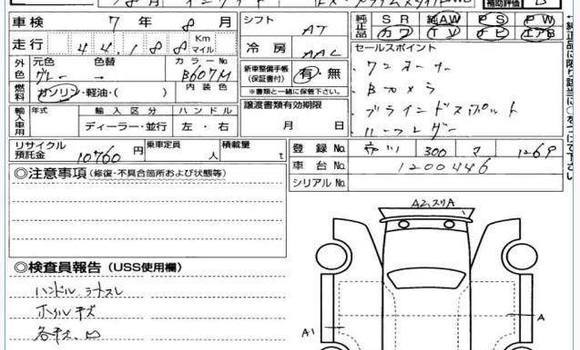 車検 7年 8月 シフト AT 純正品 SR 純AW PS PW
カワ TV ナビ エアB
走行 44,188 Km マイル 冷房 AAC セールスポイント
外色 元色 グレー 色替 カラーNo B607M 新車整備手帳(保証書付) 有・無
※書類と一緒に保管して下さい。
ワンオーナー
燃料 ガソリン・軽油・( ) 内装色
Bカメラ
輸入車用 年式 ディーラー・並行 ハンドル 左・右 譲渡書類有効期限 月 日
ブラインドスポット
ハーフレザー
リサイクル預託金 10760円 乗車定員 人 積載量 t 登録No. 300 1269
車台No. 1200446
シリアルNo.
◎注意事項(修復・不具合箇所および状態等)
A2,スリA
◎検査員報告(USS使用欄)
ハンドル シートスレ
ホイルキズ
各キズ、凹
A1
A
A